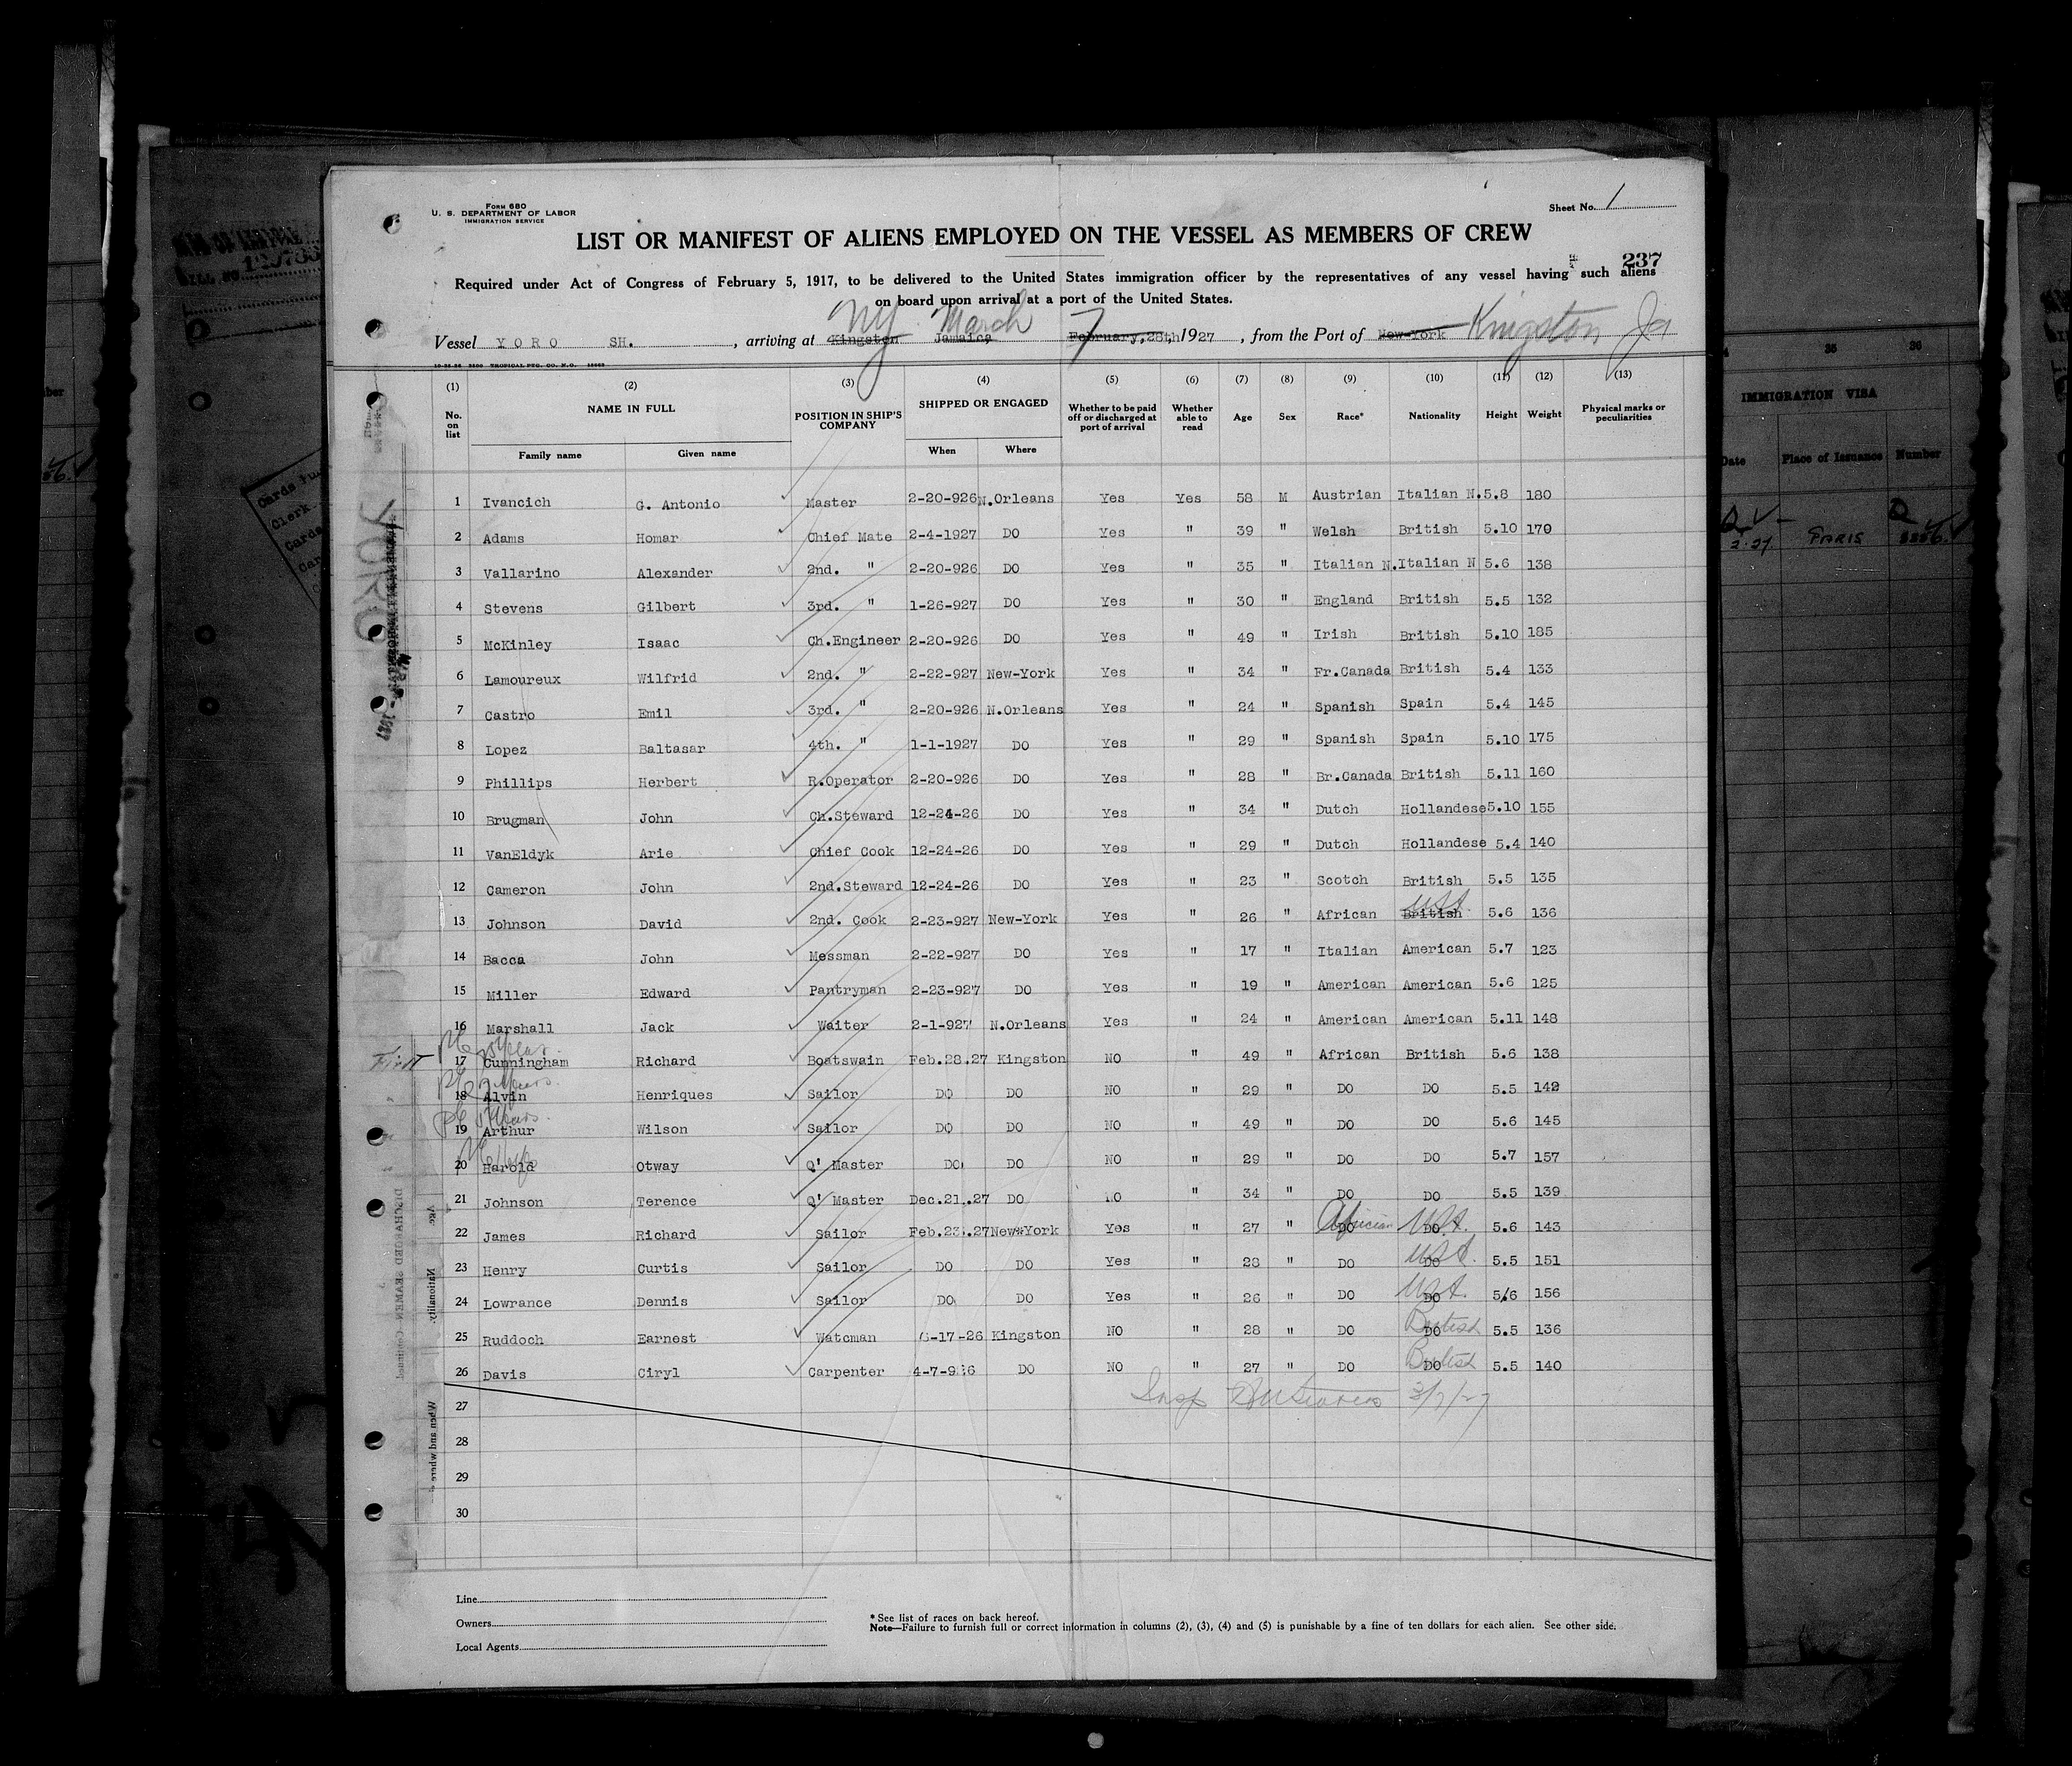 FORM 680
U. S. DEPARTMENT OF LABOR
IMMIGRATION SERVICE
Sheet No. 1
LIST OR MANIFEST OF ALIENS EMPLOYED ON THE VESSEL AS MEMBERS OF CREW
237
Required under Act of Congress of February 5, 1917, to be delivered to the United States immigration officer by the representatives of any vessel having such aliens
on board upon arrival at a port of the United States.
NY March 7 Kingston Ja
Vessel YORO SH. , arriving at Kingston Jamaica February,28th,1927 , from the Port of New-York
(1) (2) (3) (4) (5) (6) (7) (8) (9) (10) (11) (12) (13)
No. on list NAME IN FULL POSITION IN SHIP'S COMPANY SHIPPED OR ENGAGED Whether to be paid off or discharged at port of arrival Whether able to read Age Sex Race* Nationality Height Weight Physical marks or peculiarities
Family name Given name When Where
1 Ivancich G. Antonio Master 2-20-926 N.Orleans Yes Yes 58 M Austrian Italian N. 5.8 180
2 Adams Homar Chief Mate 2-4-1927 DO Yes " 39 " Welsh British 5.10 170
3 Vallarino Alexander 2nd. " 2-20-926 DO Yes " 35 " Italian N. Italian N 5.6 138
4 Stevens Gilbert 3rd. " 1-26-927 DO Yes " 30 " England British 5.5 132
5 McKinley Isaac Ch.Engineer 2-20-926 DO Yes " 49 " Irish British 5.10 185
6 Lamoureux Wilfrid 2nd. " 2-22-927 New-York Yes " 34 " Fr.Canada British 5.4 133
7 Castro Emil 3rd. " 2-20-926 N.Orleans Yes " 24 " Spanish Spain 5.4 145
8 Lopez Baltasar 4th. " 1-1-1927 DO Yes " 29 " Spanish Spain 5.10 175
9 Phillips Herbert R.Operator 2-20-926 DO Yes " 28 " Br.Canada British 5.11 160
10 Brugman John Ch.Steward 12-24-26 DO Yes " 34 " Dutch Hollandese 5.10 155
11 VanEldyk Arie Chief Cook 12-24-26 DO Yes " 29 " Dutch Hollandese 5.4 140
12 Cameron John 2nd.Steward 12-24-26 DO Yes " 23 " Scotch British 5.5 135
13 Johnson David 2nd. Cook 2-23-927 New-York Yes " 26 " African British USA 5.6 136
14 Bacca John Messman 2-22-927 DO Yes " 17 " Italian American 5.7 123
15 Miller Edward Pantryman 2-23-927 DO Yes " 19 " American American 5.6 125
16 Marshall Jack Waiter 2-1-927 N.Orleans Yes " 24 " American American 5.11 148
First 17 Cunningham Richard Boatswain Feb.28.27 Kingston NO " 49 " African British 5.6 138
18 Alvin Henriques Sailor DO DO NO " 29 " DO DO 5.5 142
19 Arthur Wilson Sailor DO DO NO " 49 " DO DO 5.6 145
20 Harold Otway Q' Master DO DO NO " 29 " DO DO 5.7 157
21 Johnson Terence Q' Master Dec.21,.27 DO NO " 34 " DO DO 5.5 139
22 James Richard Sailor Feb.23.27 New-York Yes " 27 " DO African DO USA. 5.6 143
23 Henry Curtis Sailor DO DO Yes " 28 " DO DO USA. 5.5 151
24 Lowrance Dennis Sailor DO DO Yes " 26 " DO DO USA. 5/6 156
25 Ruddoch Earnest Watcman 6-17-26 Kingston NO " 28 " DO DO British 5.5 136
26 Davis Ciryl Carpenter 4-7-926 DO NO " 27 " DO DO British 5.5 140
27 Insp 3/7/27
28
29
30
Line
Owners
Local Agents
* See list of races on back hereof.
Note—Failure to furnish full or correct information in columns (2), (3), (4) and (5) is punishable by a fine of ten dollars for each alien. See other side.
IMMIGRATION VISA
Date Place of Issuance Number
PARIS